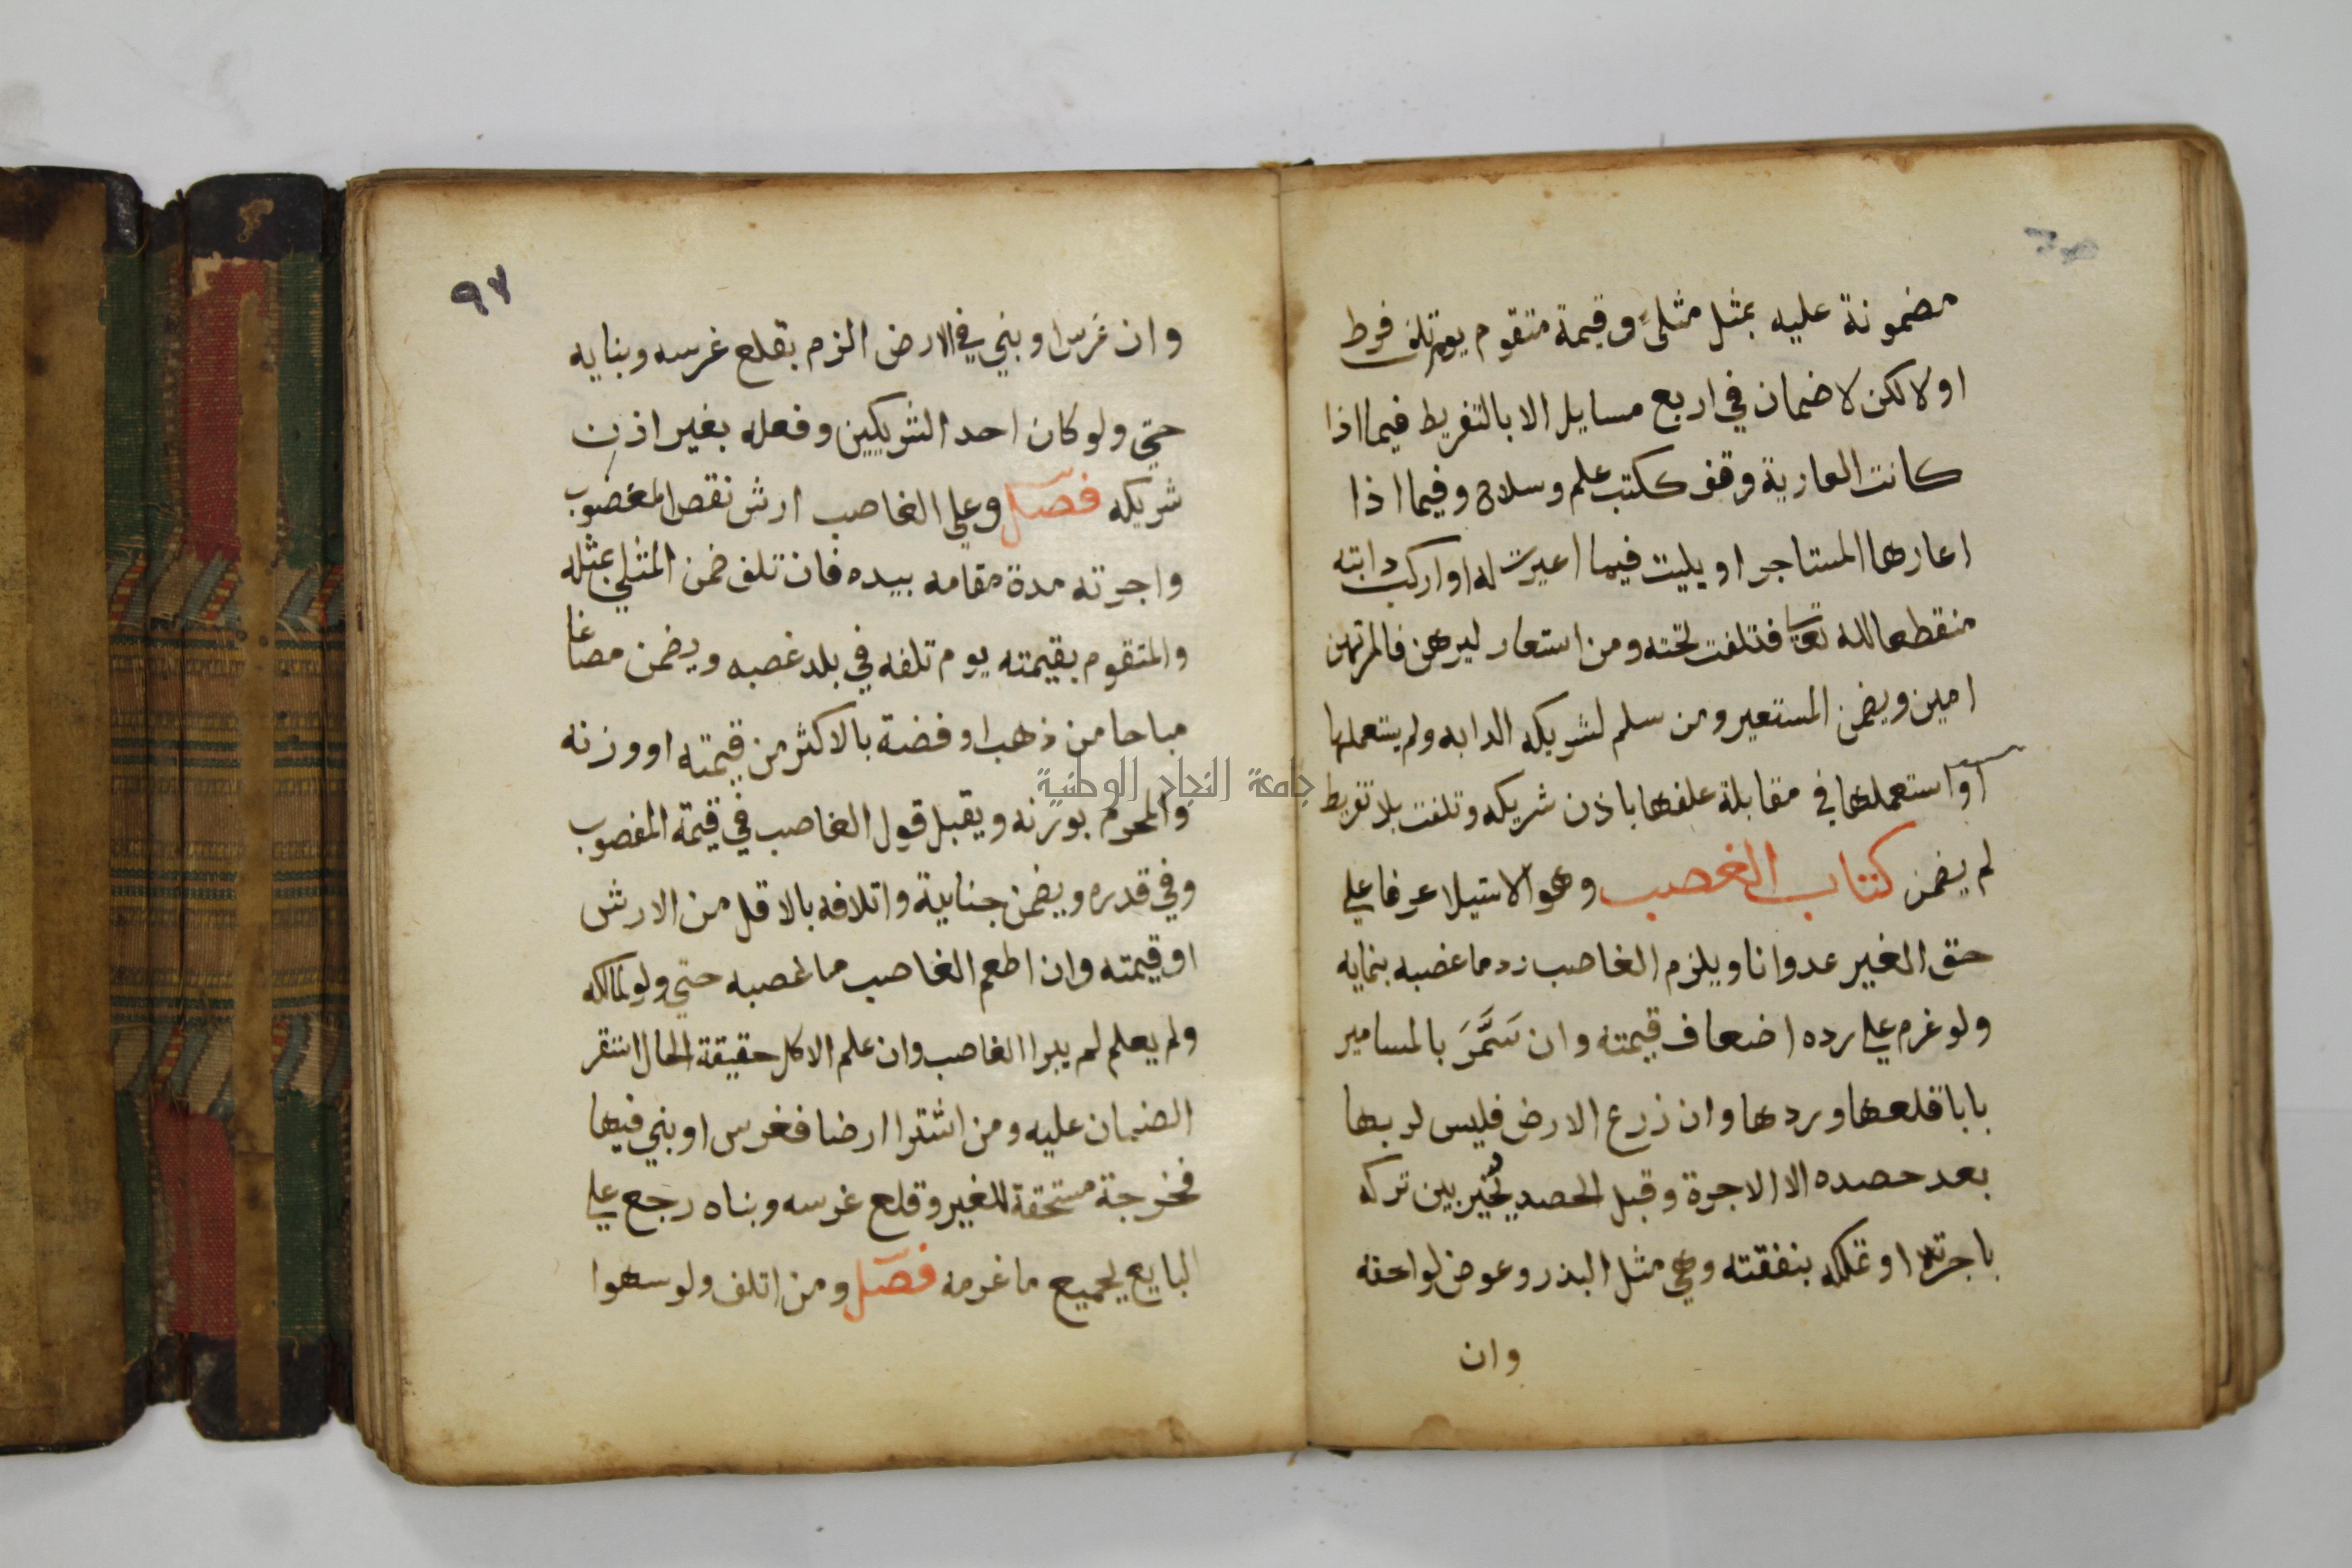 مضمونة عليه بمثل مثلي وقيمة متقوم يوم تلف فرط
او لا لكن لا ضمان في اربع مسايل الا بالتفريط فيما اذا
كانت العارية وقف ككتب علم وسلاح وفيما اذا
اعارها المستاجر او بليت فيما اعيرت له او اركب دابته
منقطعا لله تعالى فتلفت تحته ومن استعار ليرهن فالمرتهن
امين ويضمن المستعير ومن سلم لشريكه الدابه ولم يستعملها
او استعملها في مقابلة علفها باذن شريكه وتلفت بلا تفريط
لم يضمن كتاب الغصب وهو الاستيلا عرفا علي
حق الغير عدوانا ويلزم الغاصب رد ما غصبه بنمايه
ولو غرم علي رده اضعاف قيمته وان سَمَّرَ بالمسامير
بابا قلعها وردها وان زرع الارض فليس لربها
بعد حصده الا الاجرة وقبل الحصد يُخير بين تركه
باجرته او تملكه بنفقته وهي مثل البذر وعوض لواحقه
وان
٩٧
وان غرس او بني في الارض الزم بقلع غرسه وبنايه
حتي ولو كان احد الشريكين وفعله بغير اذن
شريكه فصل وعلي الغاصب ارش نقص المغصوب
واجرته مدة مقامه بيده فان تلف ضمن المثلي بمثله
والمتقوم بقيمته يوم تلفه في بلد غصبه ويضمن مصاغا
مباحا من ذهب او فضة بالاكثر من قيمته او وزنه
والمحرم بوزنه ويقبل قول الغاصب في قيمة المغصوب
وفي قدره ويضمن جناية واتلافه بالاقل من الارش
او قيمته وان اطعم الغاصب ما غصبه حتي ولو لمالكه
ولم يعلم لم يبرا الغاصب وان علم الاكل حقيقة الحال استقر
الضمان عليه ومن اشترا ارضا فغرس او بني فيها
فخرجة مستحقة للغير وقلع غرسه وبناه رجع علي
البايع بجميع ما غرمه فصل ومن اتلف ولو سهوا
جامعة النجاح الوطنية